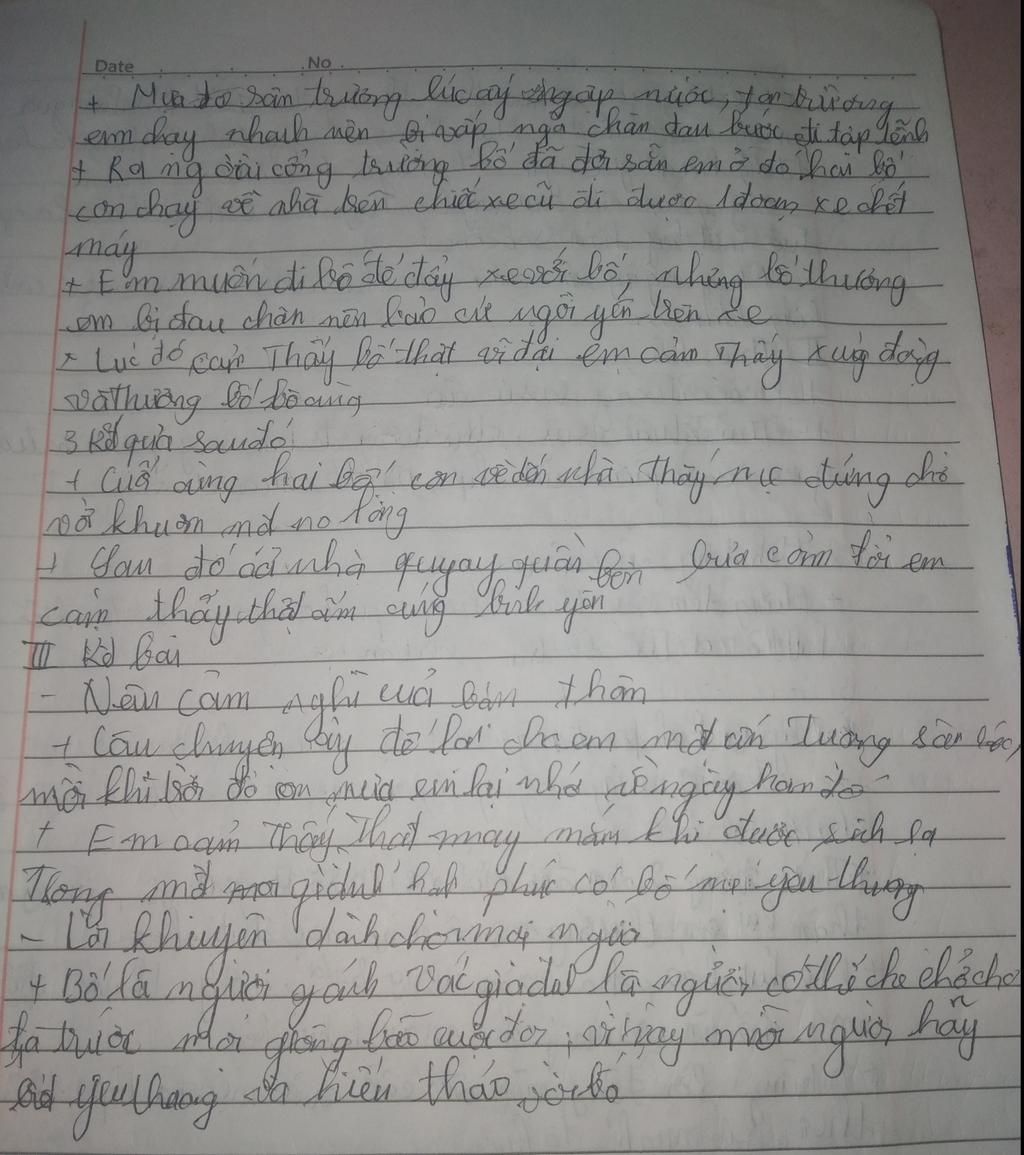 Date No
+ Mưa to sân trường lúc ấy ngập nước, tan trường
em chạy nhanh nên bị vấp ngã chân đau bước đi tập tễnh
+ Ra ngoài cổng trường bố đã đợi sẵn em ở đó, hai bố
con chạy về nhà trên chiếc xe cũ đi được 1 đoạn xe chết
máy
+ Em muốn đi bộ để đẩy xe với bố, nhưng bố thương
em bị đau chân nên bảo cứ ngồi yên trên xe
+ Lúc đó cảm Thấy bố thật vĩ đại em cảm Thấy xúc động
và thương bố vô cùng
3 Kết quả sau đó
+ Cuối cùng hai bố con về đến nhà. Thấy mẹ đứng chờ
với khuôn mặt no lắng
+ Sau đó cả nhà quay quần bên bữa cơm tối em
cảm thấy thật ấm cúng bình yên
III Kết bài
- Nêu cảm nghĩ của bản thân
+ Câu chuyện ấy để lại cho em một ấn Tượng sâu sắc,
mỗi khi trời đổ cơn mưa em lại nhớ về ngày hôm đó
+ Em cảm Thấy Thật may mắn khi được sinh ra
Trong một gia đình hạnh phúc có bố mẹ yêu thương
- Lời khuyên dành cho mọi người
+ Bố là người gánh vác gia đình là người có thể che chở cho
ta trước mọi giông bão cuộc đời, vì vậy mỗi người hãy
yêu thương và hiếu thảo với bố